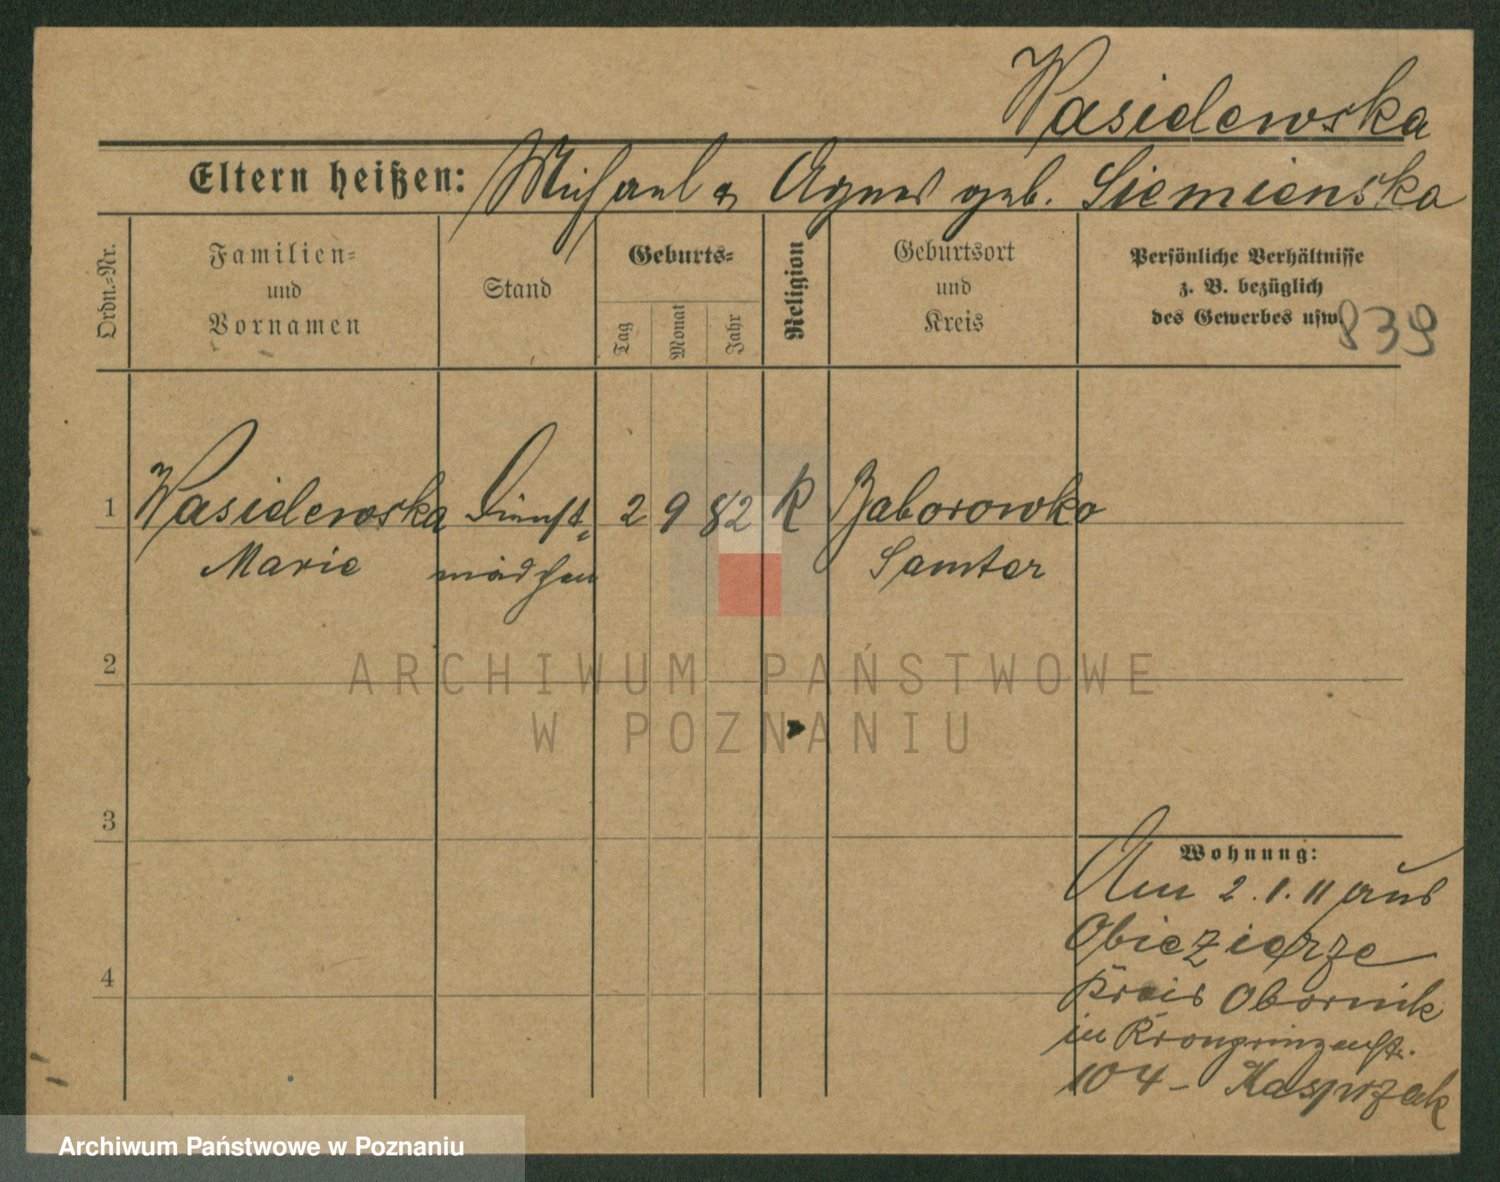 Wasielewska
Eltern heißen: Michael & Agnes geb. Siemienska
Ordn.=Nr.
Familien=
und
Vornamen
Stand
Geburts=
Tag
Monat
Jahr
Religion
Geburtsort
und
Kreis
Persönliche Verhältnisse
z. B. bezüglich
des Gewerbes usw.
839
1 Wasielewska Dienst= 2 9 82 K Baborowko
Marie mädchen Samter
2
ARCHIWUM PAŃSTWOWE
W POZNANIU
3
Wohnung:
Am 2.1.11 aus
Obiezierze
4
Kreis Obornik
in Kronprinzenstr.
104 - Kasprzak
Archiwum Państwowe w Poznaniu